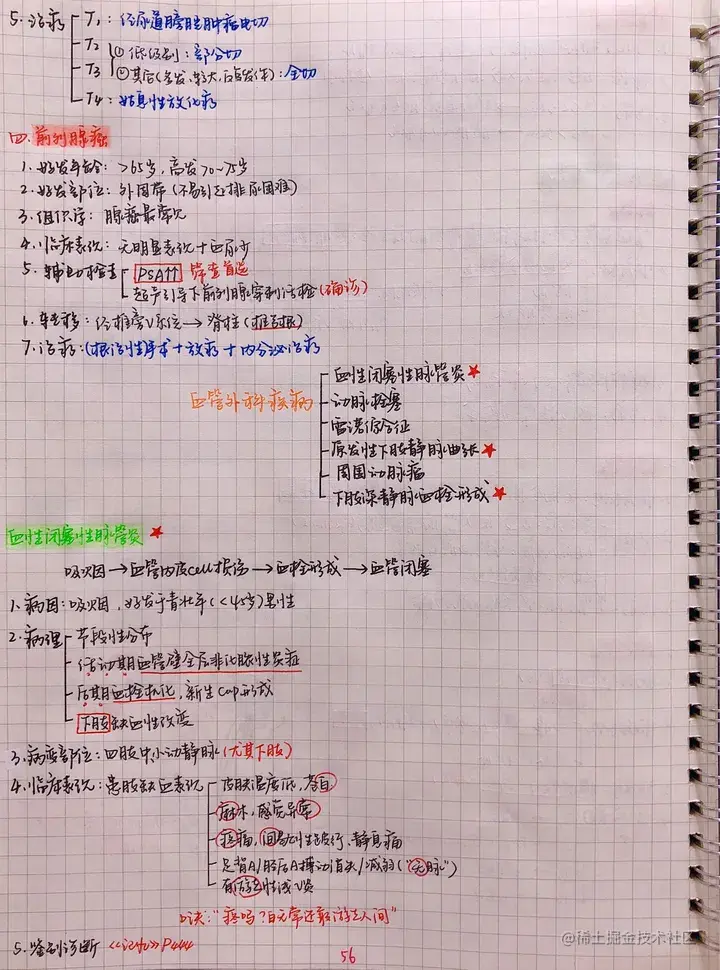 5. 治疗 T₁: 经尿道膀胱肿瘤电切
T₂ ① 低级别: 部分切
T₃ ② 其后(多发、较大、反复发作): 全切
T₄: 姑息性放化疗
四. 前列腺癌
1. 好发年龄: >65岁, 高发70~75岁
2. 好发部位: 外周带 (不易引起排尿困难)
3. 组织学: 腺癌最常见
4. 临床表现: 无明显表现+血尿少
5. 辅助检查 PSA↑↑ 筛查首选
超声引导下前列腺穿刺活检(确诊)
6. 转移: 经椎旁V系统→脊柱(椎弓根)
7. 治疗: (根治性手术+放疗+内分泌治疗
血管外科疾病 血性闭塞性脉管炎 ★
动脉栓塞
雷诺综合征
原发性下肢静脉曲张 ★
周围动脉瘤
下肢深静脉血栓形成 ★
血性闭塞性脉管炎 ★
吸烟→血管内皮cell损伤→血栓形成→血管闭塞
1. 病因: 吸烟, 好发于青壮年(<45岁)男性
2. 病理 节段性分布
活动期血管壁全层非化脓性炎症
后期血栓机化, 新生cap形成
下肢缺血性改变
3. 病变部位: 四肢中小动静脉(尤其下肢)
4. 临床表现: 患肢缺血表现 皮肤温度低, 苍白
麻木, 感觉异常
疼痛, 间歇性跛行、静息痛
足背A/胫后A搏动消失/减弱("无脉")
有游走性浅V炎
口诀: "疼吗?白无常还敢游走人间"
5. 鉴别诊断 P444
56
@稀土掘金技术社区